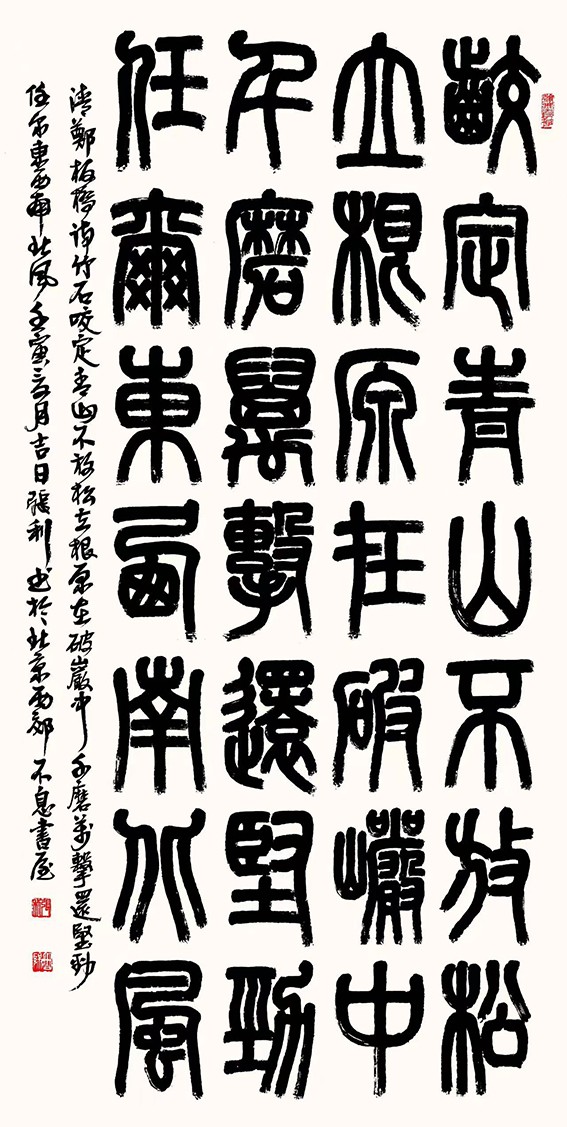 齩定青山不放松
立根原在破巖中
千磨萬擊還堅勁
任爾東西南北風
清鄭板橋诗竹石咬定青山不放松立根原在破巖中千磨萬擊還堅勁
任尔東西南北风壬寅三月吉日張利书於北京西郊不息書屋